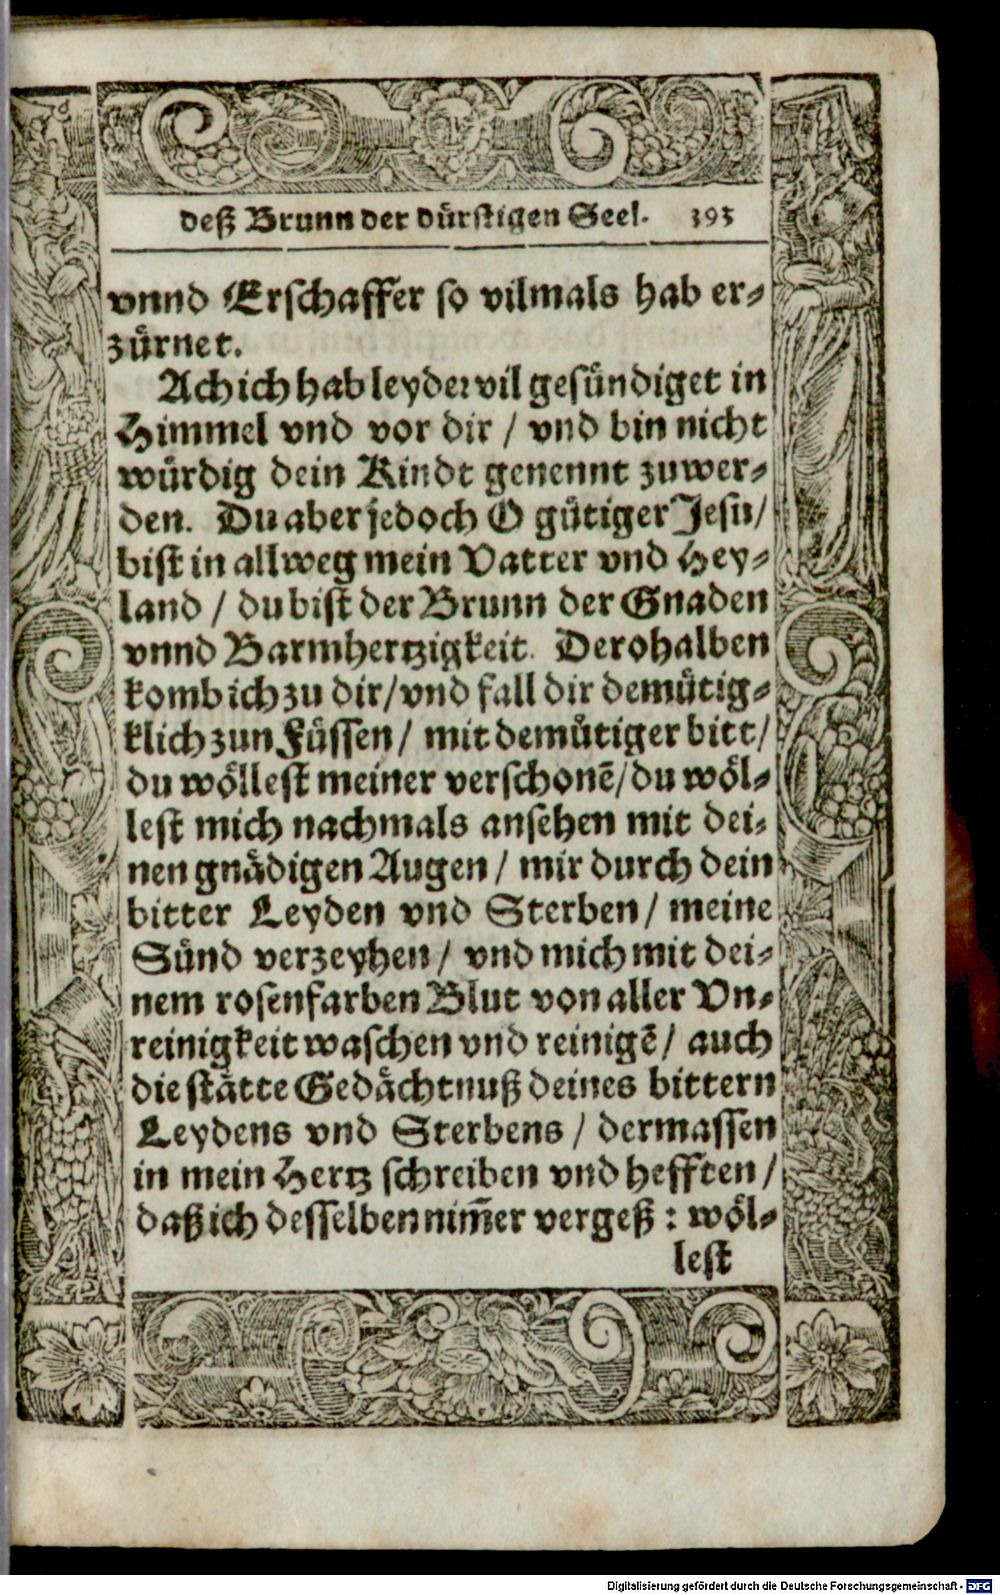 deß Brunn der dürstigen Seel. 395
vnnd Erschaffer so vilmals hab er-
zürnet.
Ach ich hab leyder vil gesündiget in
Himmel vnd vor dir / vnd bin nicht
würdig dein Kindt genennt zuwer-
den. Du aber jedoch O gütiger Jesu /
bist in allweg mein Vatter vnd Hey-
land / du bist der Brunn der Gnaden
vnnd Barmhertzigkeit. Derohalben
komb ich zu dir / vnd fall dir demütig-
klich zun Füssen / mit demütiger bitt /
du wöllest meiner verschonē / du wöl-
lest mich nachmals ansehen mit dei-
nen gnädigen Augen / mir durch dein
bitter Leyden vnd Sterben / meine
Sünd verzeyhen / vnd mich mit dei-
nem rosenfarben Blut von aller Vn-
reinigkeit waschen vnd reinigē / auch
die stätte Gedächtnuß deines bittern
Leydens vnd Sterbens / dermassen
in mein Hertz schreiben vnd hefften /
daß ich desselben nim̄er vergeß : wöl-
lest
Digitalisierung gefördert durch die Deutsche Forschungsgemeinschaft - DFG